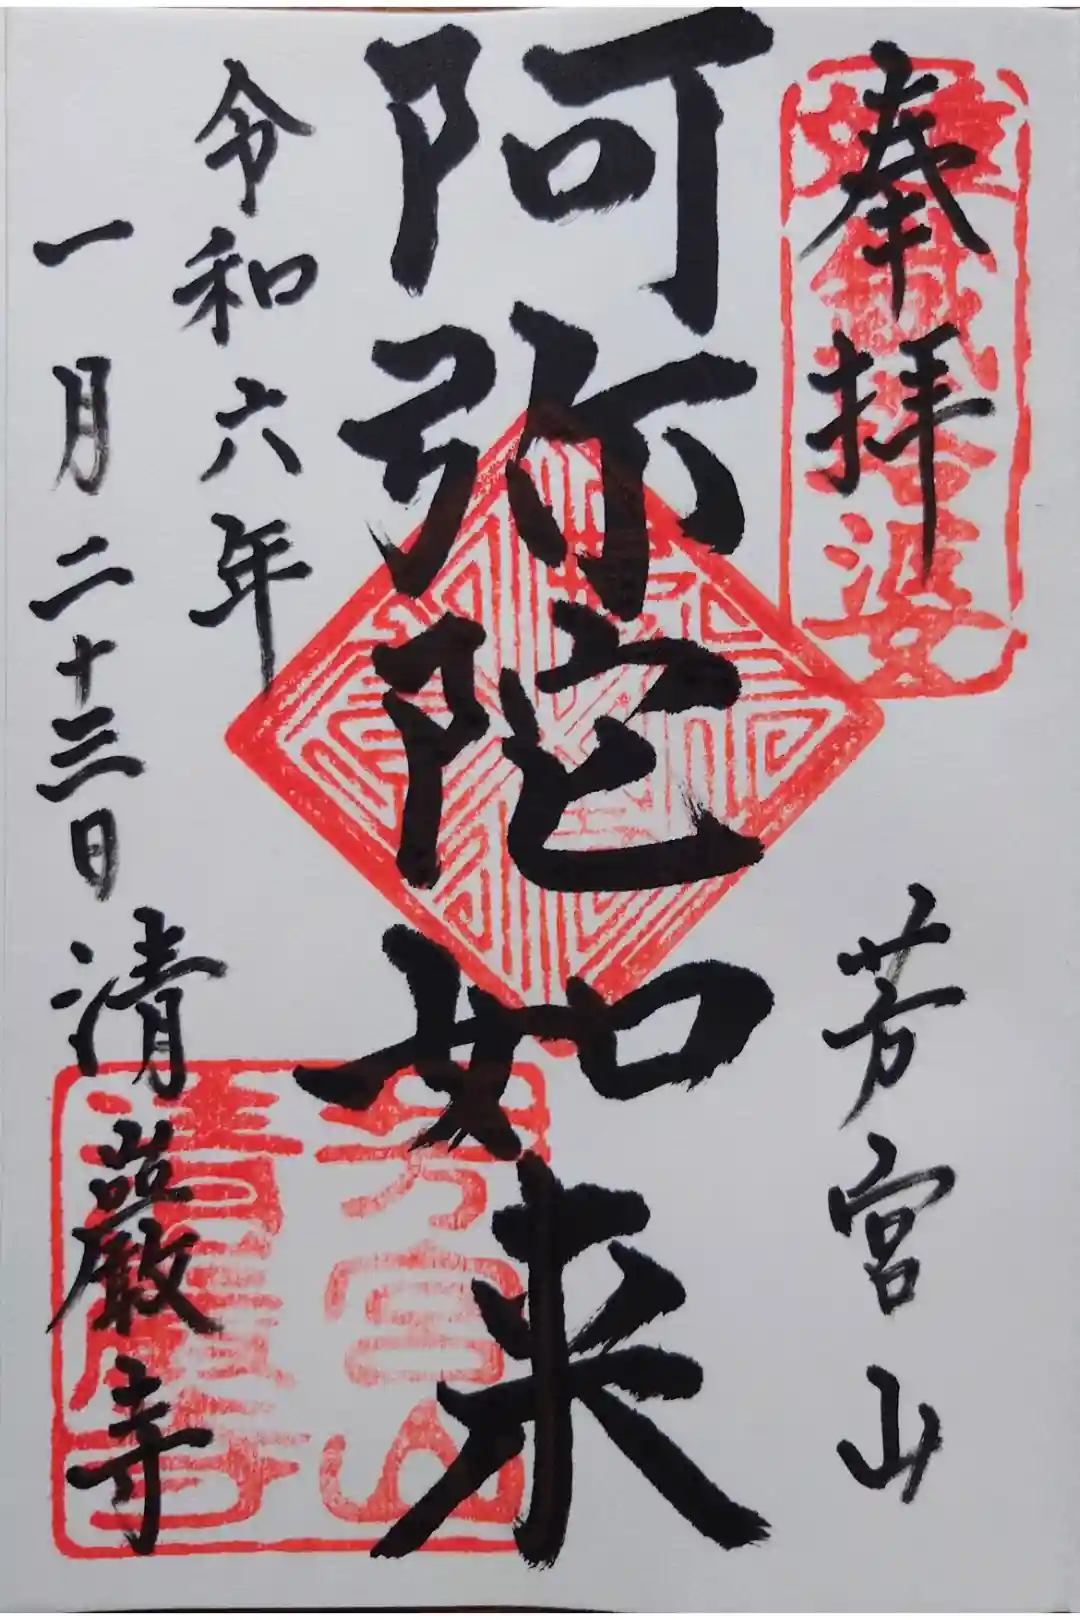 奉拝
芳宮山
阿弥陀如来
令和六年
一月二十三日
清巖寺
芳宮山
清巖寺